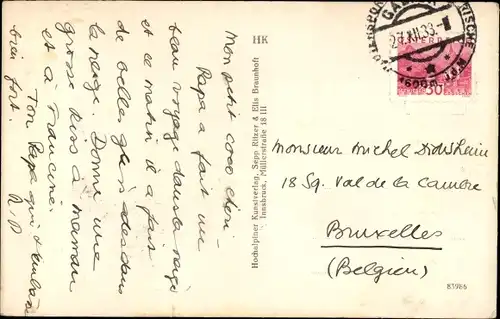 Mon petit coco chéri
Papa a fait un
beau voyage dans la
et ce matin il a fait
de belles glissades dans
la neige. Donne une
grosse kiss à maman
et à Francine.
Ton Papa qui t'embrasse
bien fort.
HK
Hochalpiner Kunstverlag, Sepp Ritzer & Ella Braunhoft
Innsbruck, Müllerstraße 18 III
27.XII.33
30
Monsieur Michel
18 Sq. Val de la Cambre
Bruxelles
(Belgien)
83986